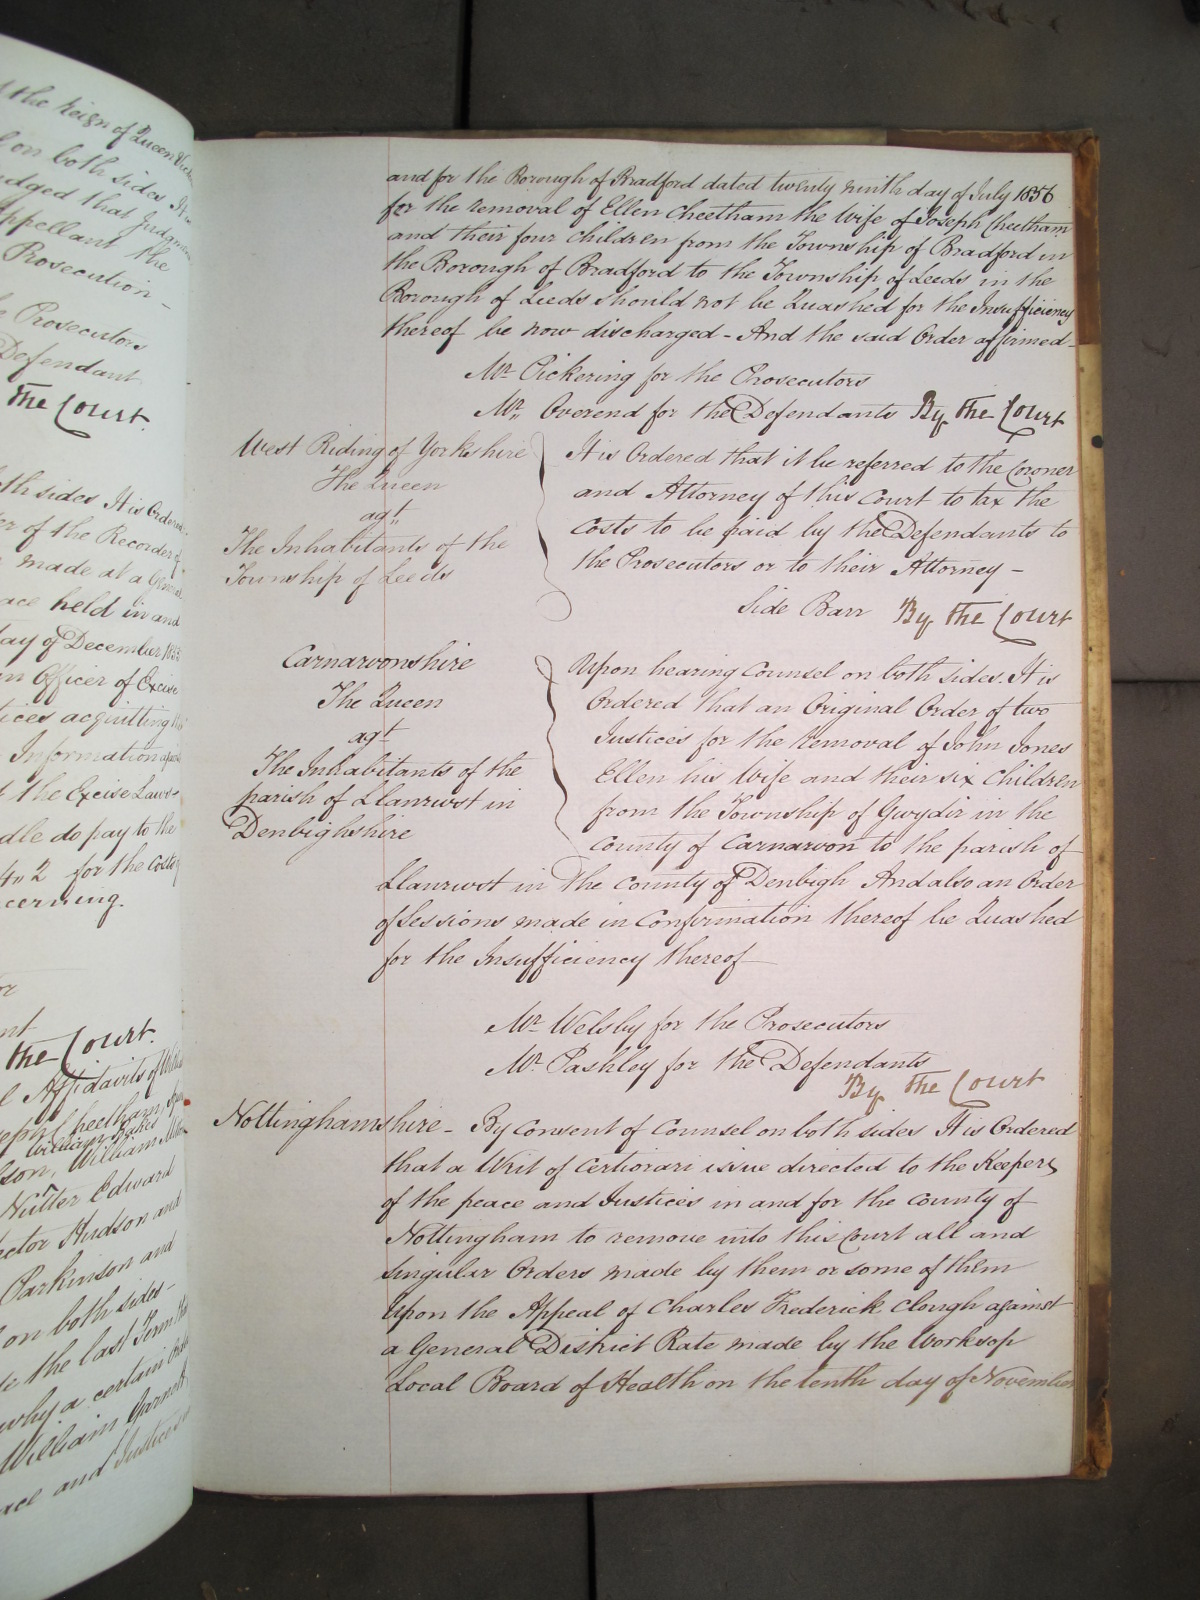 the Reign of Queen
on both sides It is
adged that Judgment
Appellant the
Prosecution -
Prosecutors
Defendant
the Court.
both sides It is Ordered
of the Recorder of
made at a General
held in and
day of December
Officer of Excise
acquitting
Information
the Excise Laws
do pay to the
4" 2 for the costs
cerning.
the Court.
Affidavits of
Cheetham,
William
Nutter Edward
Hudson and
Parkinson and
on both sides -
the last Term
why a certain
William Garnett
and Justices
and for the Borough of Bradford dated twenty ninth day of July 1856
for the removal of Ellen Cheetham the Wife of Joseph Cheetham
and their four children from the Township of Bradford in
the Borough of Bradford to the Township of Leeds in the
Borough of Leeds should not be Quashed for the Insufficiency
thereof be now discharged - And the said Order affirmed -
Mr Pickering for the Prosecutors
Mr. Overend for the Defendants By the Court
West Riding of Yorkshire
The Queen
agt.
The Inhabitants of the
Township of Leeds
It is Ordered that it be referred to the Coroner
and Attorney of this Court to tax the
Costs to be paid by the Defendants to
the Prosecutors or to their Attorney -
Side Barr By the Court
Carnarvonshire
The Queen
agt
The Inhabitants of the
parish of Llanrwst in
Denbighshire
Upon hearing Counsel on both sides. It is
Ordered that an Original Order of two
Justices for the removal of John Jones
Ellen his Wife and their six Children
from the Township of Gwydir in the
County of Carnarvon to the parish of
Llanrwst in the County of Denbigh And also an Order
of Sessions made in Confirmation thereof be Quashed
for the Insufficiency thereof
Mr Welsby for the Prosecutors
Mr Pashley for the Defendants
By the Court
Nottinghamshire - By Consent of Counsel on both sides It is Ordered
that a Writ of Certiorari issue directed to the Keepers
of the peace and Justices in and for the County of
Nottingham to remove into this Court all and
Singular Orders made by them or some of them
Upon the Appeal of Charles Frederick Clough against
a General District Rate made by the Worksop
Local Board of Health on the tenth day of November